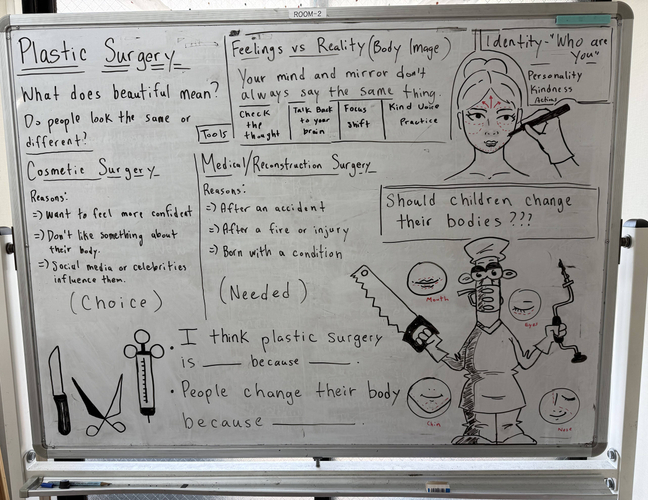 ROOM-2
Plastic Surgery
What does beautiful mean?
Do people look the same or
different?
Feelings vs Reality (Body Image)
Your mind and mirror don't
always say the same thing.
Tools
Check
the
thought
Talk Back
to your
brain
Focus
shift
Kind Voice
Practice
Identity - "Who are
You"
Personality
Kindness
Actions
Cosmetic Surgery
Reasons:
=) Want to feel more confident
=) Don't like something about
their body.
=) Social media or celebrities
influence them.
(Choice)
Medical/Reconstruction Surgery
Reasons:
=) After an accident
=) After a fire or injury
=) Born with a condition
(Needed)
Should children change
their bodies???
Mouth
Eyes
Chin
Nose
• I think plastic surgery
is ____ because ____.
• People change their body
because ________.